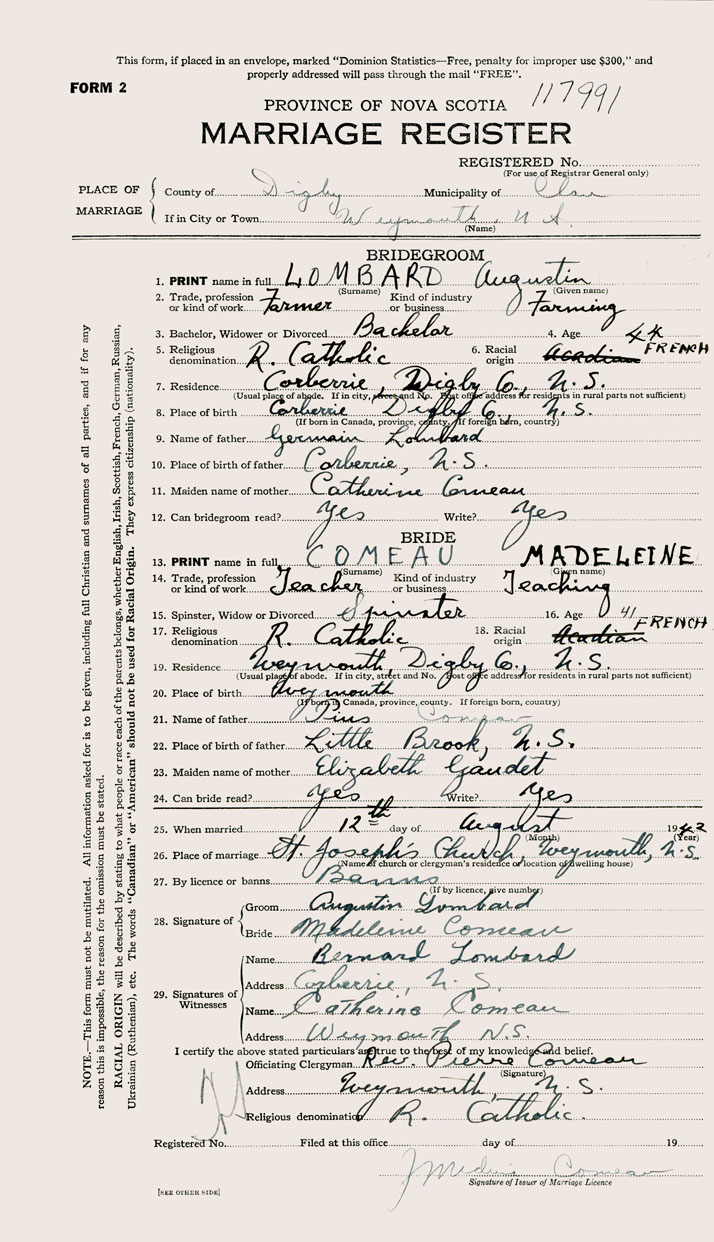 This form, if placed in an envelope, marked "Dominion Statistics—Free, penalty for improper use $300," and
properly addressed will pass through the mail "FREE".
FORM 2
117991
PROVINCE OF NOVA SCOTIA
MARRIAGE REGISTER
REGISTERED No.
(For use of Registrar General only)
PLACE OF MARRIAGE
County of Digby Municipality of Clare
If in City or Town Weymouth, N S.
(Name)
BRIDEGROOM
1. PRINT name in full LOMBARD Augustin
(Surname) (Given name)
2. Trade, profession or kind of work Farmer Kind of industry or business Farming
3. Bachelor, Widower or Divorced Bachelor 4. Age 44
5. Religious denomination R. Catholic 6. Racial origin Acadian FRENCH
7. Residence Corberrie, Digby Co., N.S.
(Usual place of abode. If in city, street and No. Post office address for residents in rural parts not sufficient)
8. Place of birth Corberrie Digby Co., N.S.
(If born in Canada, province, county. If foreign born, country)
9. Name of father Germain Lombard
10. Place of birth of father Corberrie, N.S.
11. Maiden name of mother Catherine Comeau
12. Can bridegroom read? Yes Write? Yes
BRIDE
13. PRINT name in full COMEAU MADELEINE
(Surname) (Given name)
14. Trade, profession or kind of work Teacher Kind of industry or business Teaching
15. Spinster, Widow or Divorced Spinster 16. Age 41
17. Religious denomination R. Catholic 18. Racial origin Acadian FRENCH
19. Residence Weymouth, Digby Co., N.S.
(Usual place of abode. If in city, street and No. Post office address for residents in rural parts not sufficient)
20. Place of birth Weymouth
(If born in Canada, province, county. If foreign born, country)
21. Name of father Pius Comeau
22. Place of birth of father Little Brook, N.S.
23. Maiden name of mother Elizabeth Gaudet
24. Can bride read? Yes Write? Yes
25. When married 12th day of August 1942
(Month) (Year)
26. Place of marriage St. Joseph's Church, Weymouth, N.S.
(Name of church or clergyman's residence or location of dwelling house)
27. By licence or banns Banns
(If by licence, give number)
28. Signature of
Groom Augustin Lombard
Bride Madeleine Comeau
29. Signatures of Witnesses
Name Bernard Lombard
Address Corberrie, N.S.
Name Catherine Comeau
Address Weymouth N.S.
I certify the above stated particulars are true to the best of my knowledge and belief.
Officiating Clergyman Rev. Pierre Comeau
(Signature)
Address Weymouth, N.S.
Religious denomination R. Catholic.
Registered No. Filed at this office day of 19
Comeau
Signature of Issuer of Marriage Licence
[SEE OTHER SIDE]
NOTE.—This form must not be mutilated. All information asked for is to be given, including full Christian and surnames of all parties, and if for any
reason this is impossible, the reason for the omission must be stated.
RACIAL ORIGIN will be described by stating to what people or race each of the parents belongs, whether English, Irish, Scottish, French, German, Russian,
Ukrainian (Ruthenian), etc. The words "Canadian" or "American" should not be used for Racial Origin. They express citizenship (nationality).